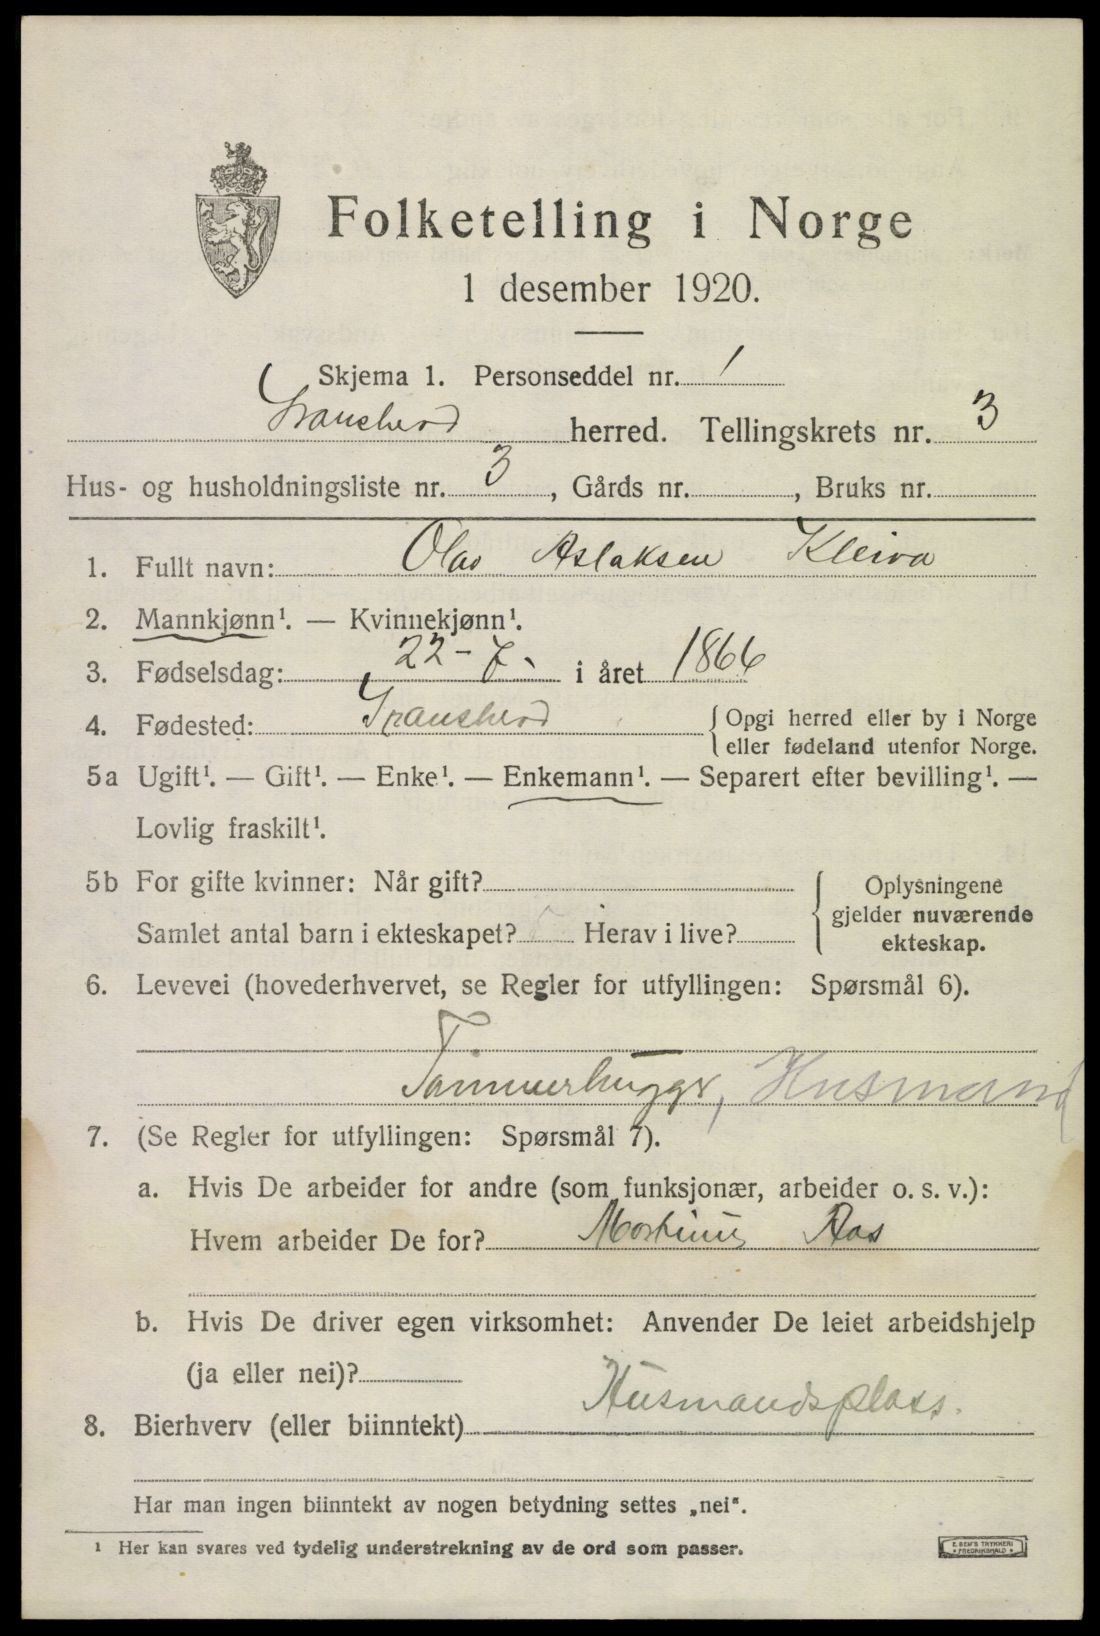 Folketelling i Norge
1 desember 1920.
Skjema 1. Personseddel nr. 1
Gransherad herred. Tellingskrets nr. 3
Hus- og husholdningsliste nr. 3, Gårds nr. , Bruks nr.
1. Fullt navn: Olav Aslaksen Kleiva
2. Mannkjønn¹. — Kvinnekjønn¹.
3. Fødselsdag: 22-7. i året 1866
4. Fødested: Gransherad { Opgi herred eller by i Norge
eller fødeland utenfor Norge.
5a Ugift¹. — Gift¹. — Enke¹. — Enkemann¹. — Separert efter bevilling¹. —
Lovlig fraskilt¹.
5b For gifte kvinner: Når gift? { Oplysningene
gjelder nuværende
Samlet antal barn i ekteskapet? Herav i live?
ekteskap.
6. Levevei (hovederhvervet, se Regler for utfyllingen: Spørsmål 6).
Tømmerhugger, Husmand
7. (Se Regler for utfyllingen: Spørsmål 7).
a. Hvis De arbeider for andre (som funksjonær, arbeider o. s. v.):
Hvem arbeider De for? Mortinius Aas
b. Hvis De driver egen virksomhet: Anvender De leiet arbeidshjelp
(ja eller nei)?
8. Bierhverv (eller biinntekt) Husmandsplass.
Har man ingen biinntekt av nogen betydning settes „nei".
¹ Her kan svares ved tydelig understrekning av de ord som passer.
E. SEM'S TRYKKERI
FREDRIKSHALD